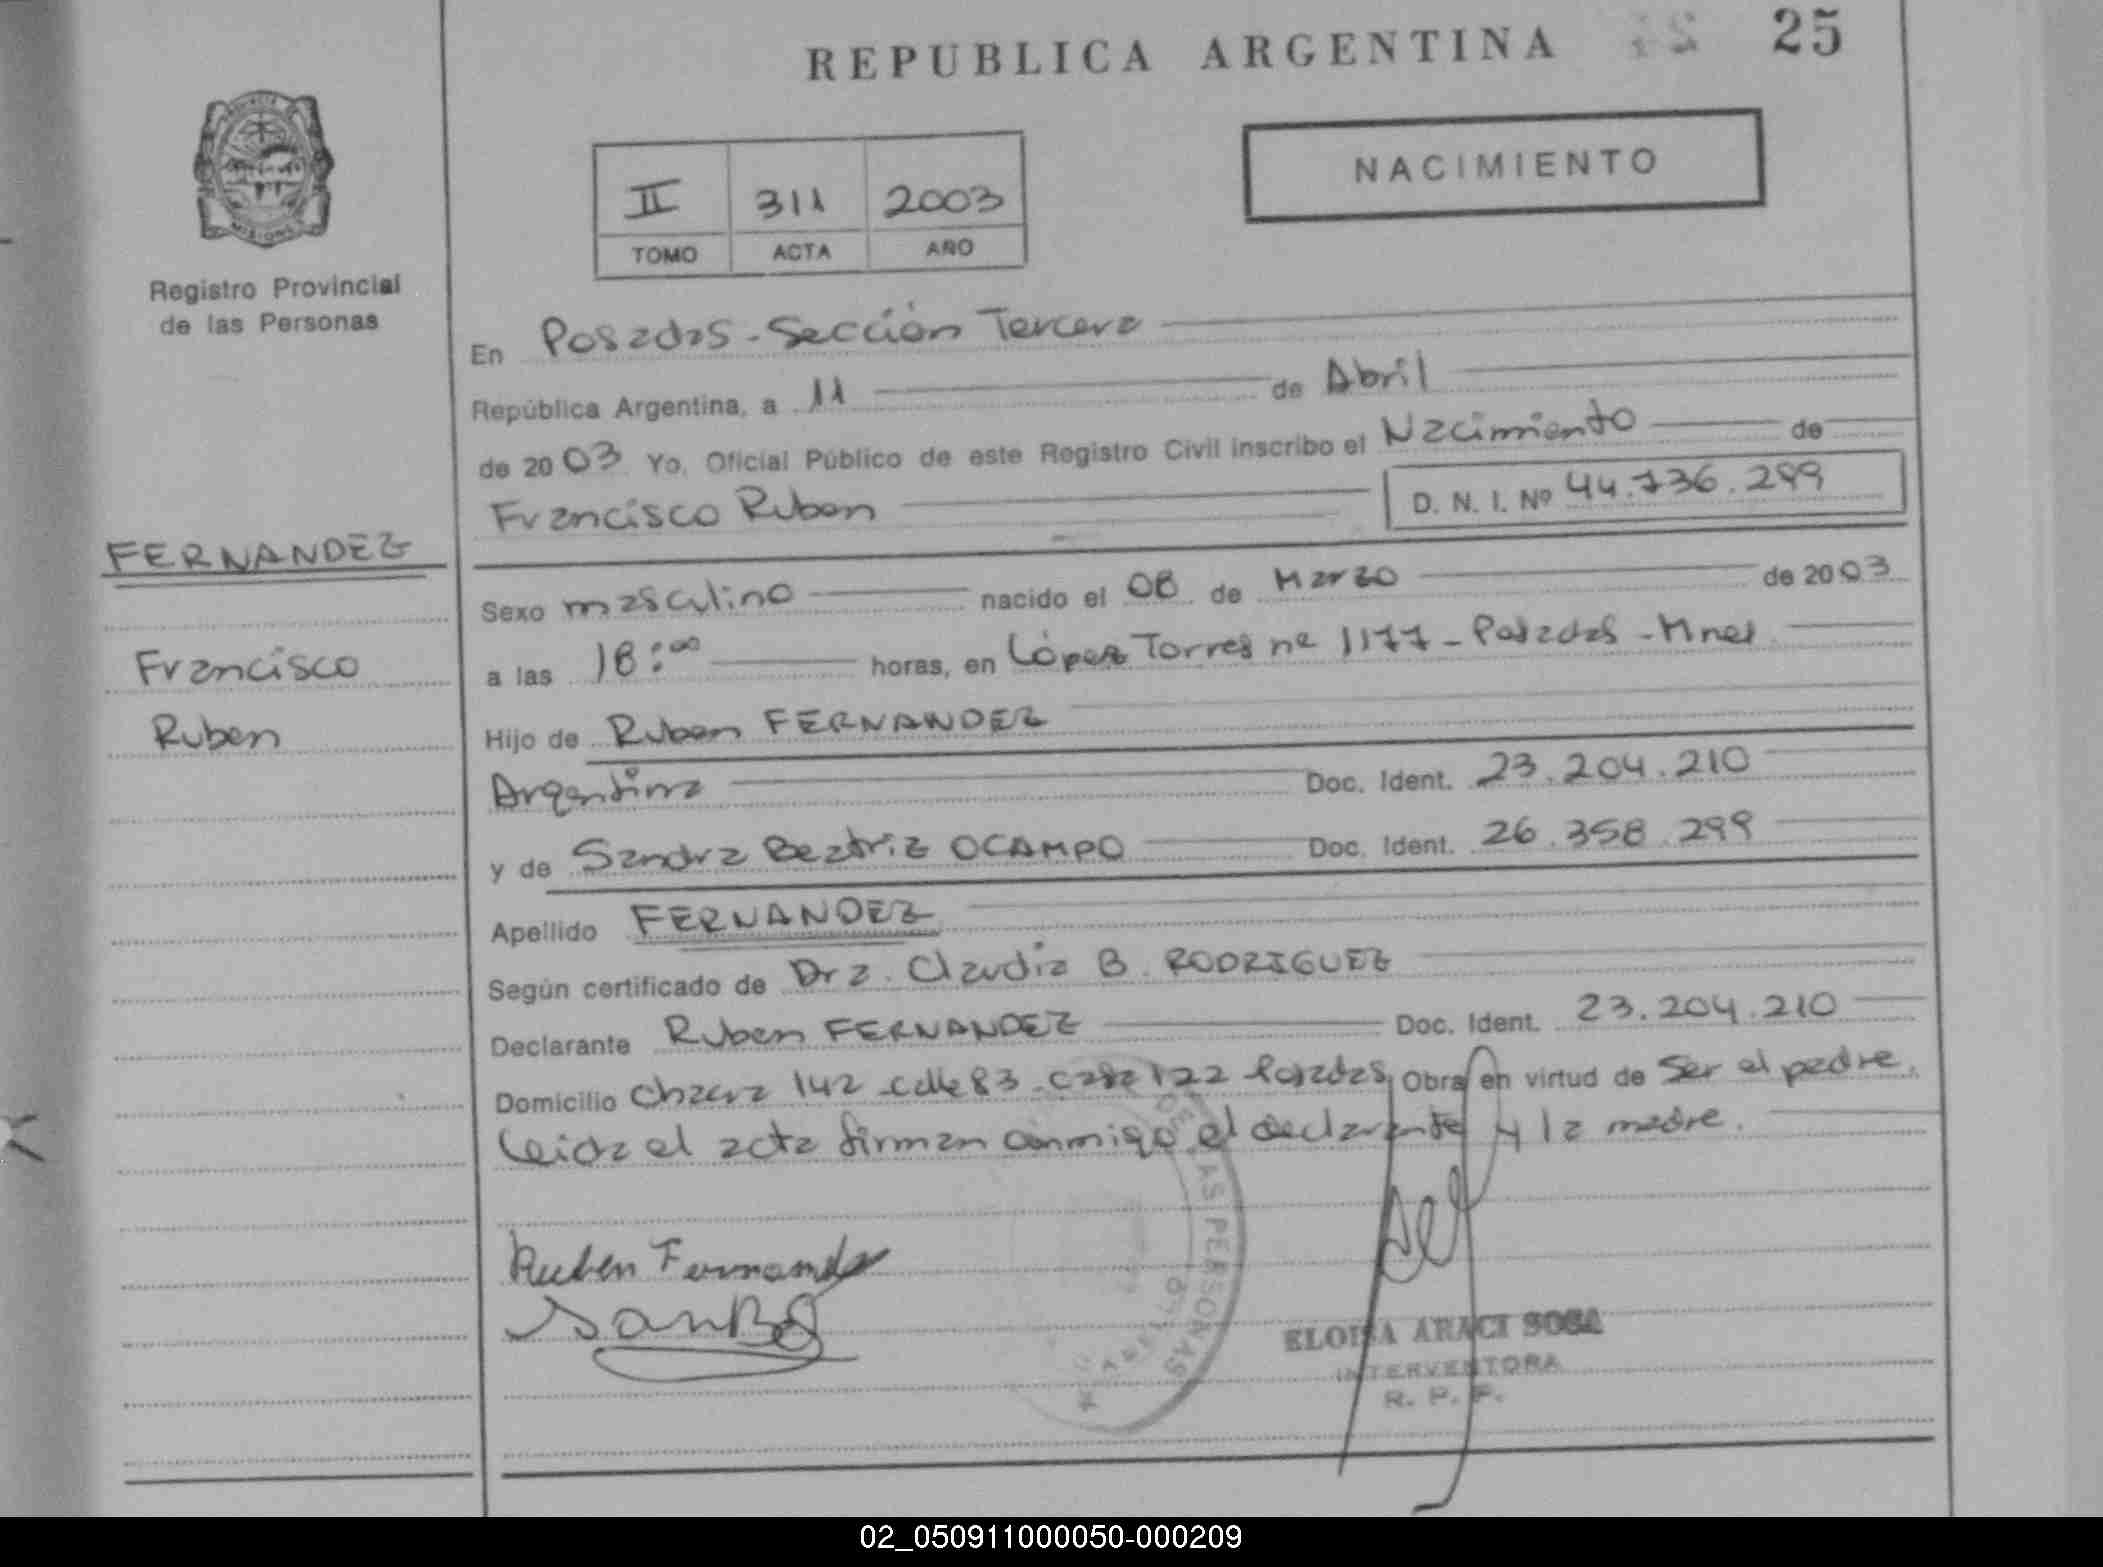 REPUBLICA ARGENTINA 25
NACIMIENTO
II 311 2003
TOMO ACTA AÑO
Registro Provincial
de las Personas
En Posadas - Sección Tercera
República Argentina, a 11 de Abril
de 2003 Yo, Oficial Público de este Registro Civil inscribo el Nacimiento de
Francisco Ruben D. N. I. Nº 44.736.299
FERNANDEZ
Francisco
Ruben
Sexo masculino nacido el 08 de Marzo de 2003
a las 18:00 horas, en López Torres nº 1177 - Posadas - Mnes
Hijo de Ruben FERNANDEZ
Argentina Doc. Ident. 23.204.210
y de Sandra Beatriz OCAMPO Doc. Ident. 26.358.299
Apellido FERNANDEZ
Según certificado de Dra. Claudia B. RODRIGUEZ
Declarante Ruben FERNANDEZ Doc. Ident. 23.204.210
Domicilio Chacra 142 calle 83 casa 122 Posadas, Obra en virtud de ser el padre.
Leida el acta firman conmigo el declarante y la madre.
Ruben Fernandez
DE LAS PERSONAS
ELOISA ARACI SOSA
INTERVENTORA
R. P. P.
02_050911000050-000209